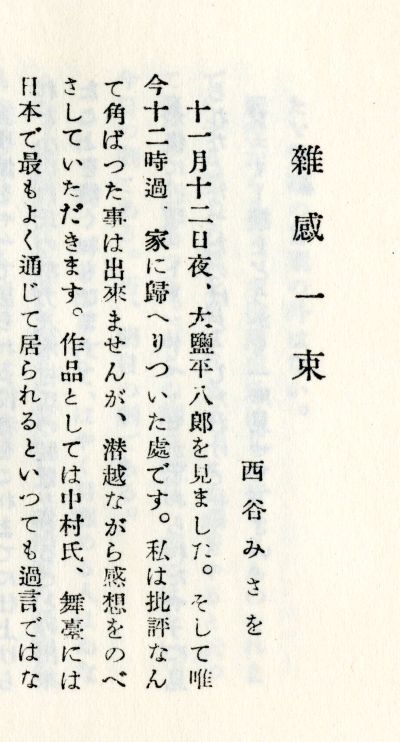 雜感一束
西谷みさを
十一月十二日夜、大鹽平八郎を見ました。そして唯
今十二時過、家に歸へりついた處です。私は批評なん
て角ばつた事は出來ませんが、潜越ながら感想をのべ
さしていただきます。作品としては中村氏、舞臺には
日本で最もよく通じて居られるといつても過言ではな